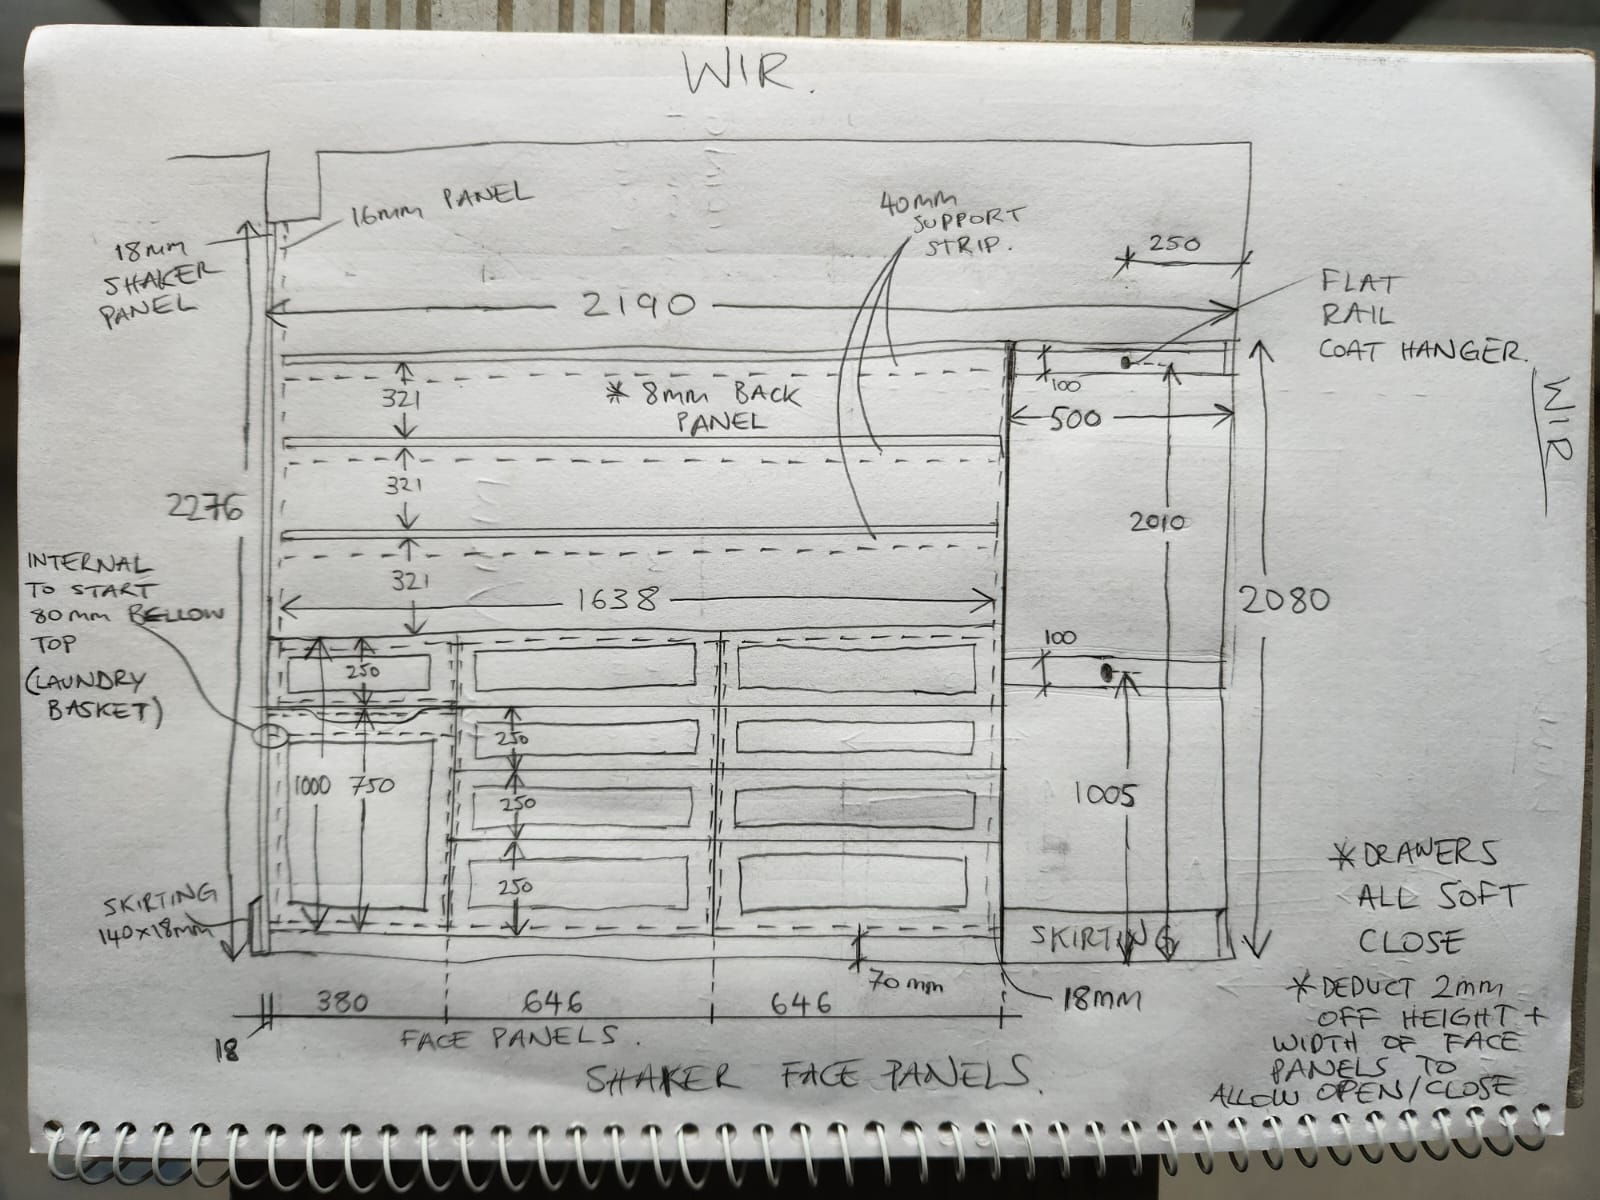 WIR.
16mm PANEL
18mm
SHAKER
PANEL
40mm
SUPPORT
STRIP.
250
FLAT
RAIL
COAT HANGER.
WIR
2190
321
* 8mm BACK
PANEL
100
500
321
2276
2010
321
INTERNAL
TO START
80mm BELLOW
TOP
(LAUNDRY
BASKET)
1638
2080
100
250
250
1000
750
250
1005
250
SKIRTING
140x18mm
SKIRTING
70mm
18mm
* DRAWERS
ALL SOFT
CLOSE
* DEDUCT 2mm
OFF HEIGHT +
WIDTH OF FACE
PANELS TO
ALLOW OPEN/CLOSE
380
646
646
18
FACE PANELS.
SHAKER FACE PANELS.